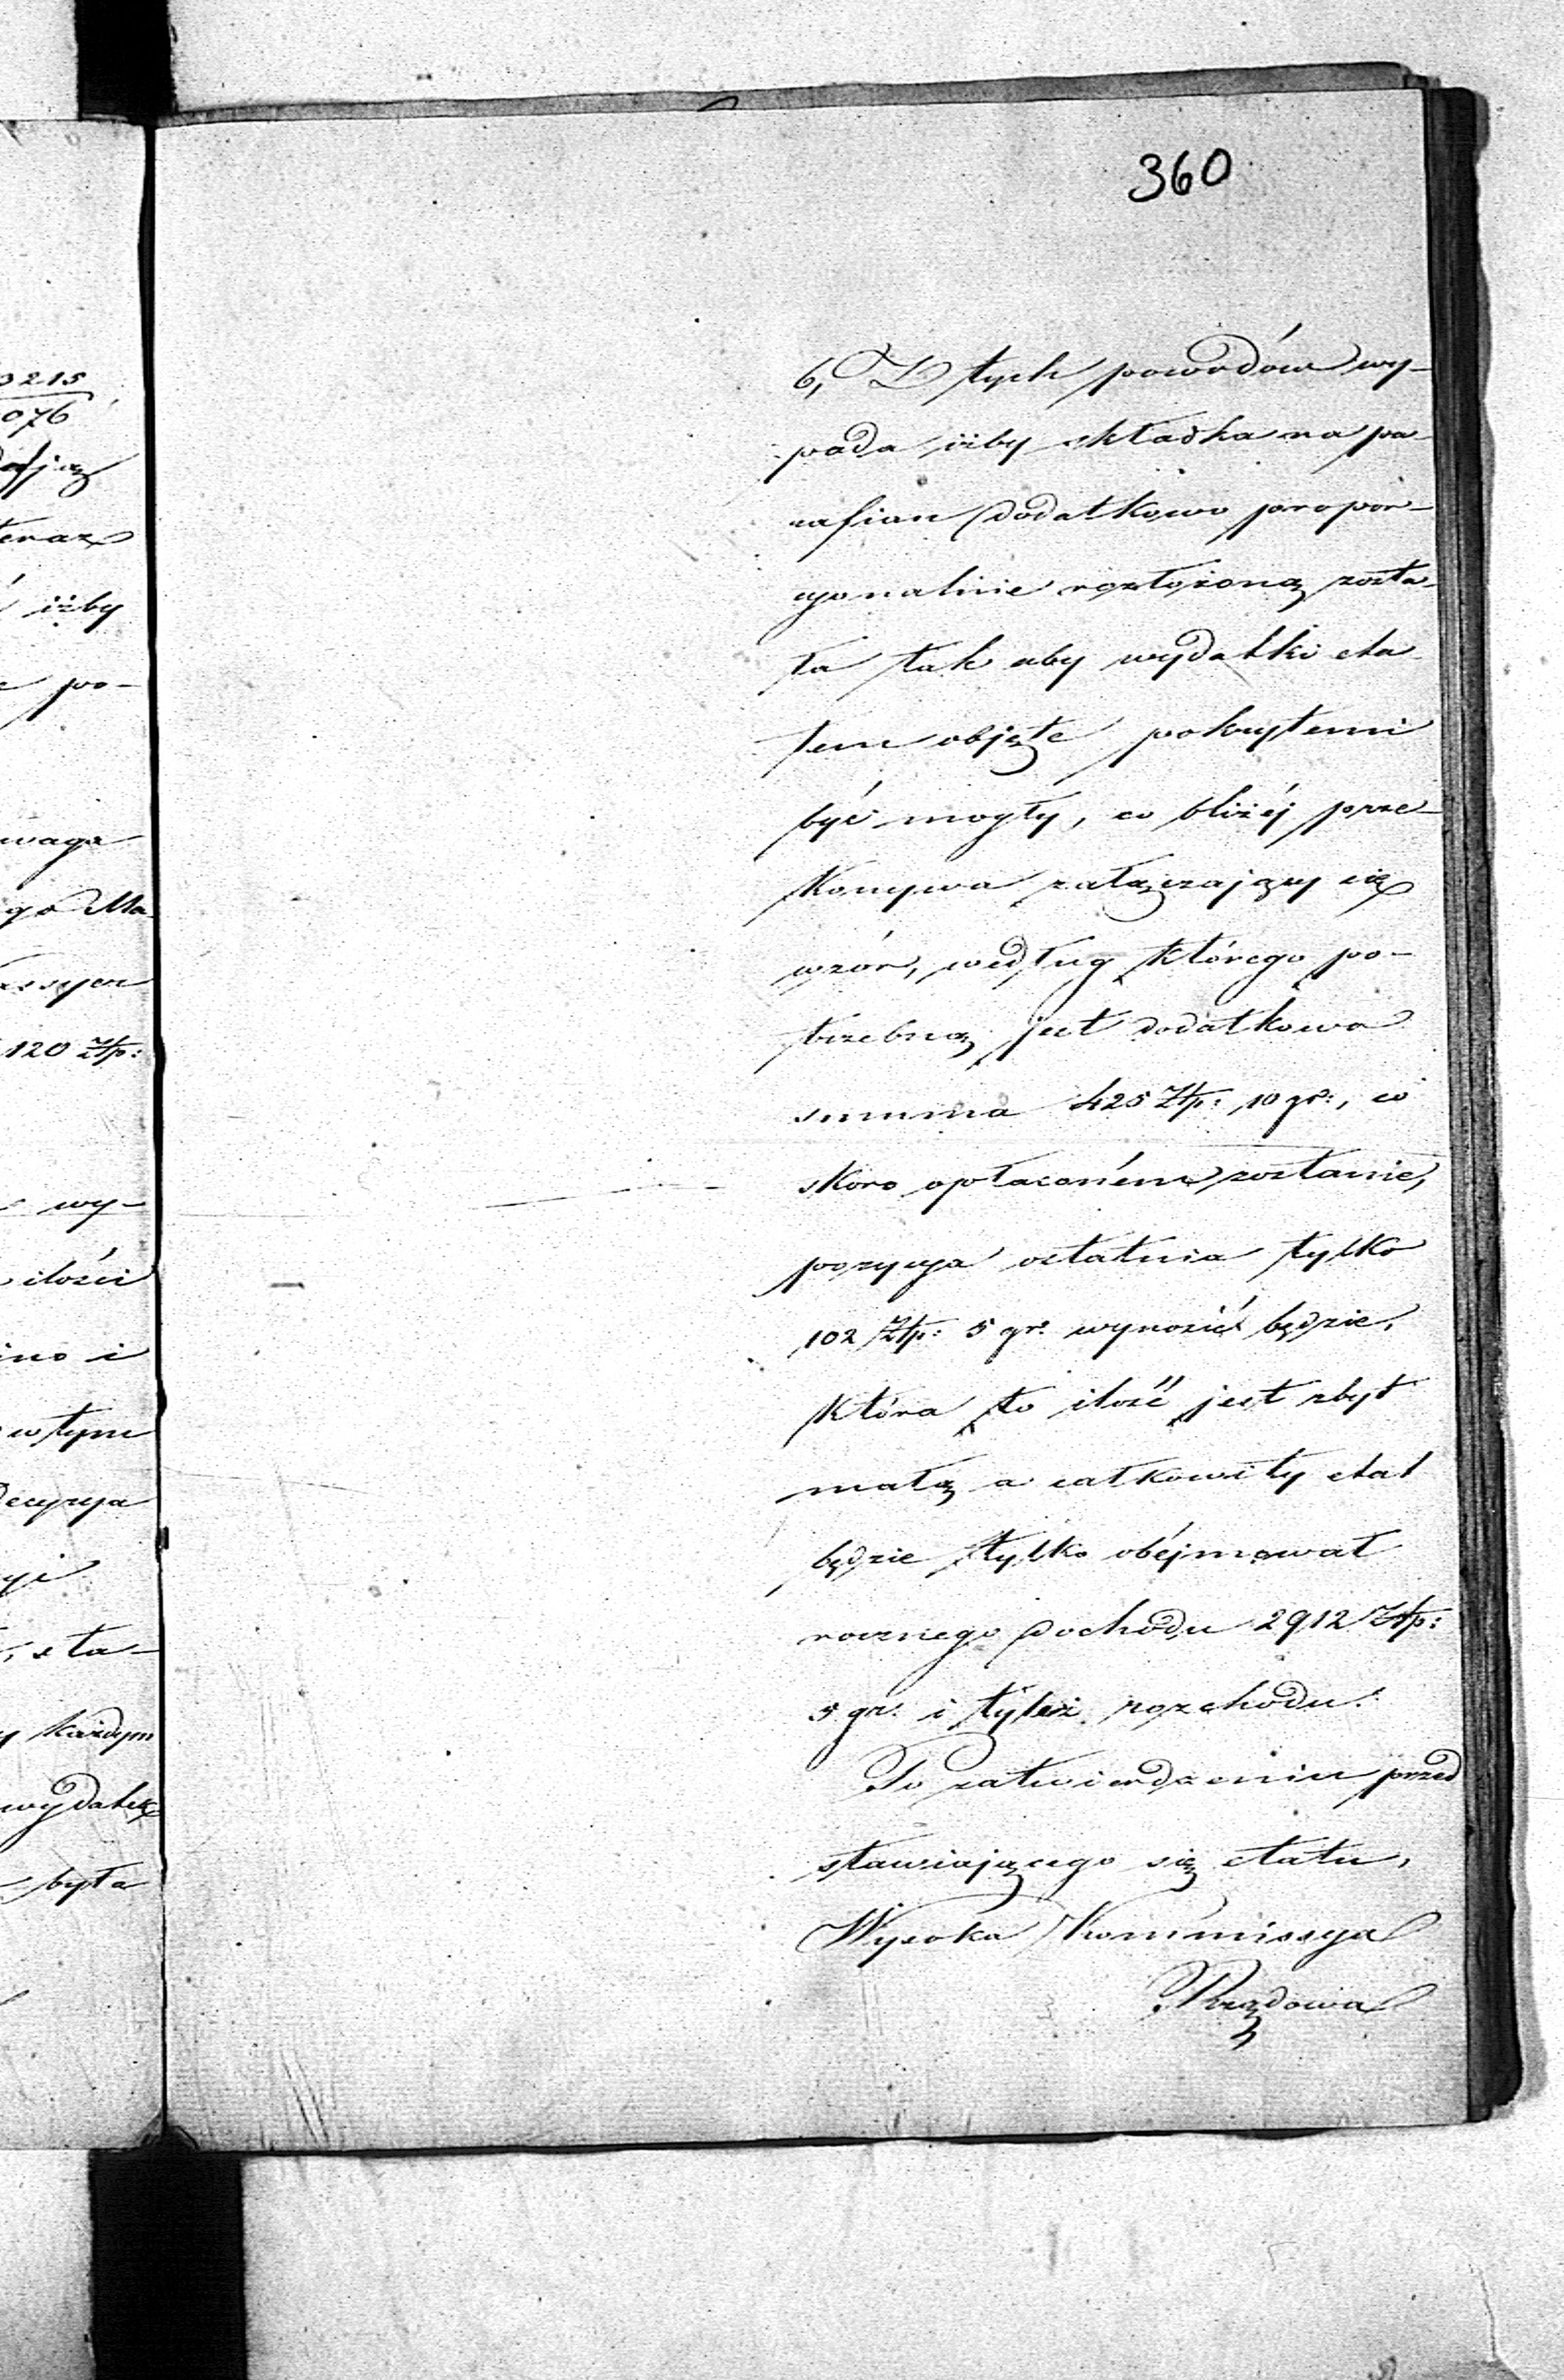 0215
076
teraz
iżby
po-
waga
go Ma-
ssyer
120 Złp:
wy-
ilości
ino i
w tym
decyzya
yi
, sta-
y każdym
wydatek
była
360
6, Z tych powodów wy-
pada iżby składka na pa-
rafian dodatkowo propor-
cyonalnie rozłożoną zosta-
ła tak aby wydatki eta-
tem objęte pokrytemi
być mogły, co bliżéj prze-
konywa załączający się
wzór, według którego po-
trzebną jest dodatkowa
summa 425 Złp: 10 gr:, co
skoro opłaconém zostanie,
pozycya ostatnia tylko
102 Złp: 5 gr: wynosić będzie,
która to ilość jest zbyt
małą a całkowity etat
będzie tylko obéjmował
rocznego dochodu 2912 Złp:
5 gr. i tyleż rozchodu.
Po zatwierdzeniu przed
stawiającego się etatu,
Wysoka Kommissya
Rządowa